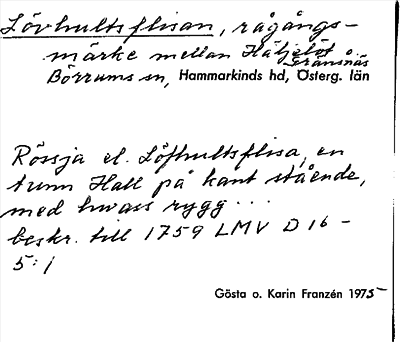 Lövhultsflisan, rågångs-
märke mellan Häljelöt o.
Fransnäs
Börrums sn, Hammarkinds hd, Österg. län
Rössja el. Löfhultsflisa, en
tunn Hall på kant stående,
med hwass rygg ...
beskr. till 1759 LMV D 16 -
5:1
Gösta o. Karin Franzén 1975